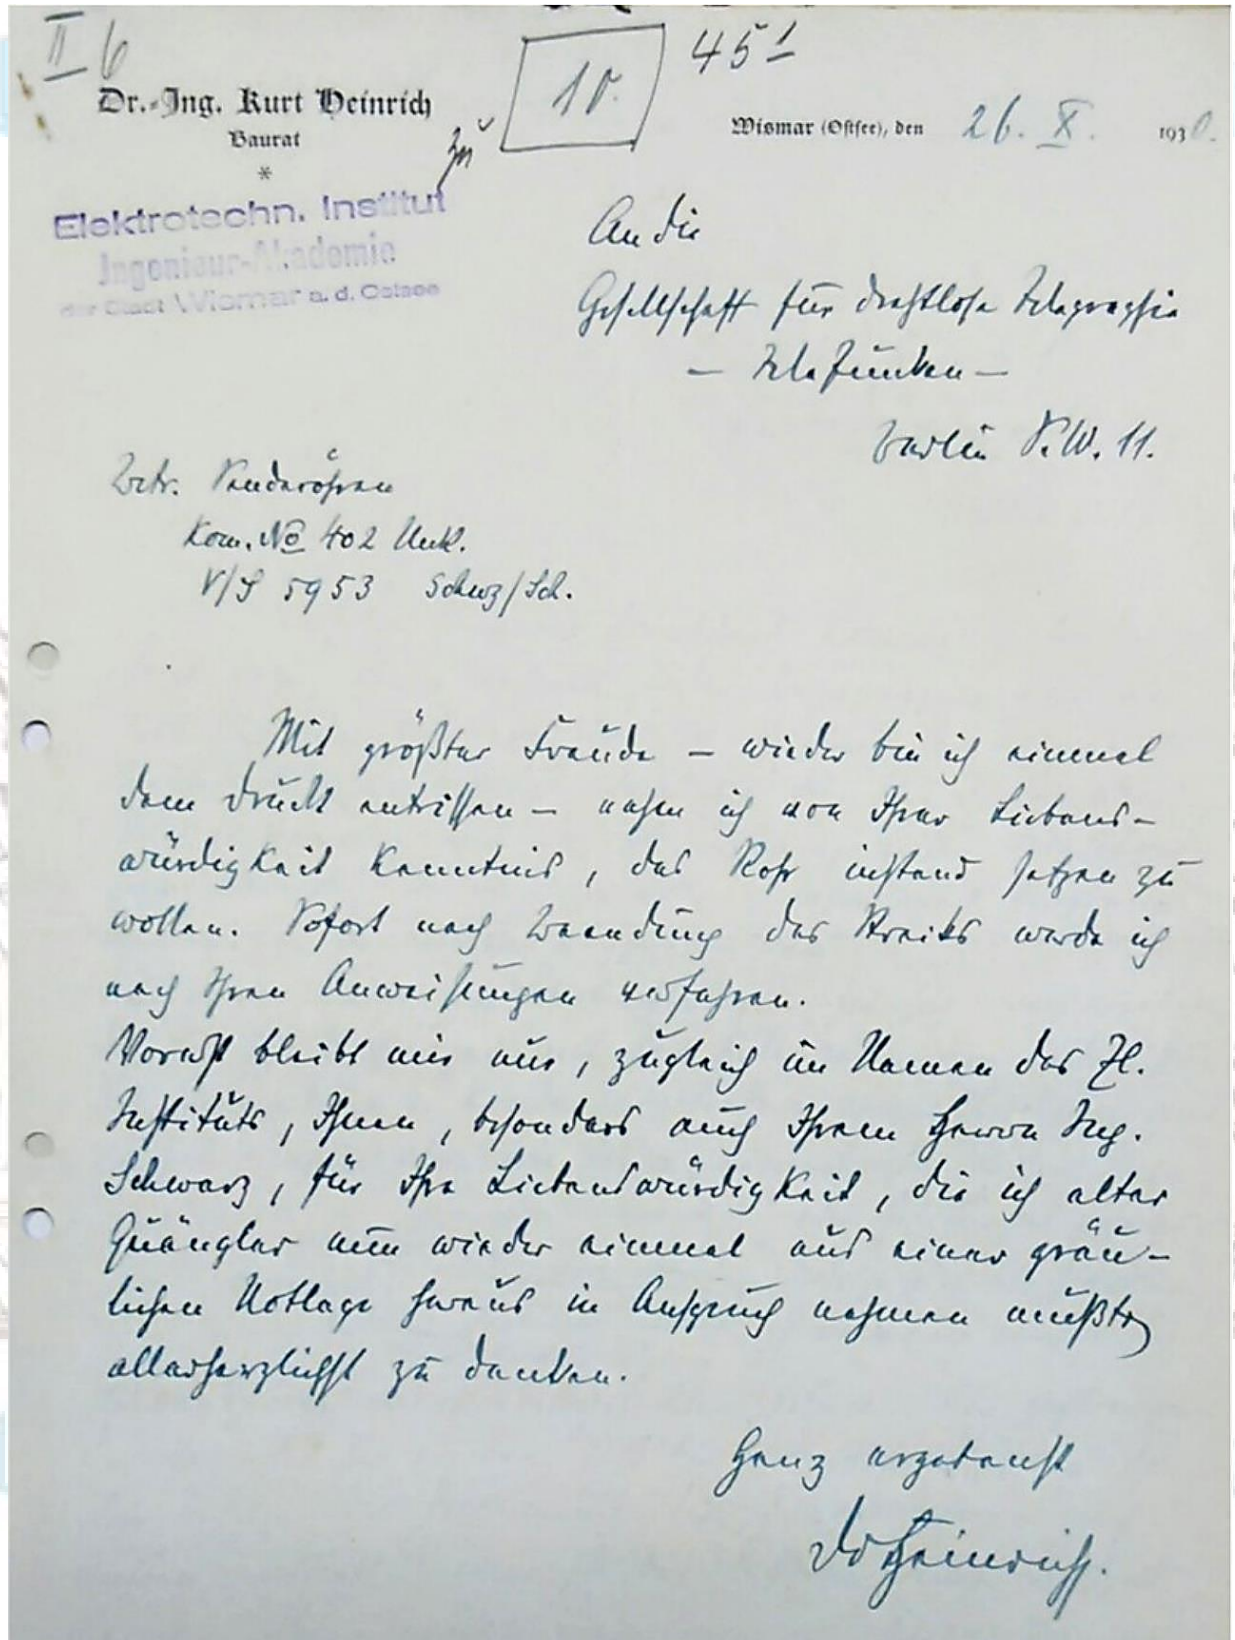 II 6
10.
45 1
Dr.-Ing. Kurt Heinrich
Baurat
*
zu
Wismar (Ostsee), den 26. X. 1930.
Elektrotechn. Institut
Ingenieur-Akademie
der Stadt Wismar a. d. Ostsee
An die
Gesellschaft für drahtlose Telegraphie
— Telefunken —
Berlin S.W. 11.
Betr. Senderöhren
Kom. No 402 Unk.
V/S 5953 Schwz/Sch.
Mit größter Freude – wieder bin ich einmal
dem Druck entrissen – nahm ich von Ihrer Liebens-
würdigkeit Kenntnis, das Rohr instand setzen zu
wollen. Sofort nach Beendung des Streiks werde ich
nach Ihren Anweisungen verfahren.
Vorerst bleibt mir nur, zugleich im Namen des El.
Instituts, Ihnen, besonders auch Ihrem Herrn Ing.
Schwarz, für Ihre Liebenswürdigkeit, die ich alter
Quängler nun wieder einmal aus einer gräu-
lichen Notlage heraus in Anspruch nehmen mußte,
allerherzlichst zu danken.
Ganz ergebenst
Dr Heinrich.